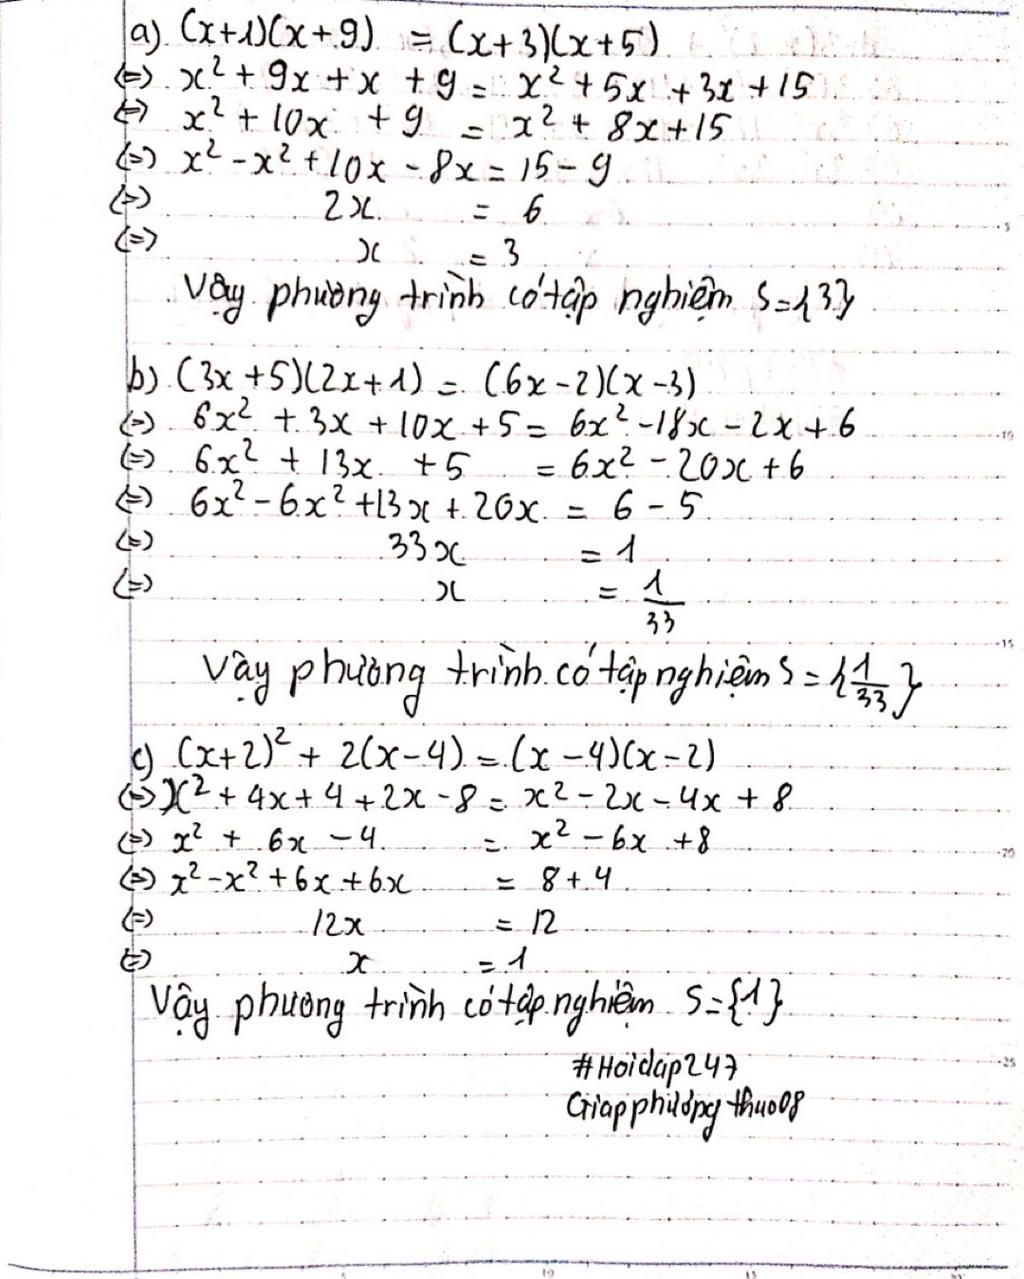 a) (x+1)(x+9) = (x+3)(x+5)
(=) x² + 9x + x + 9 = x² + 5x + 3x + 15
(=) x² + 10x + 9 = x² + 8x + 15
(=) x² - x² + 10x - 8x = 15 - 9
(=) 2x = 6
(=) x = 3
Vậy phương trình có tập nghiệm S={3}
b) (3x+5)(2x+1) = (6x-2)(x-3)
(=) 6x² + 3x + 10x + 5 = 6x² - 18x - 2x + 6
(=) 6x² + 13x + 5 = 6x² - 20x + 6
(=) 6x² - 6x² + 13x + 20x = 6 - 5
(=) 33x = 1
(=) x = 1/33
Vậy phương trình có tập nghiệm S = {1/33}
c) (x+2)² + 2(x-4) = (x-4)(x-2)
(=) x² + 4x + 4 + 2x - 8 = x² - 2x - 4x + 8
(=) x² + 6x - 4 = x² - 6x + 8
(=) x² - x² + 6x + 6x = 8 + 4
(=) 12x = 12
(=) x = 1
Vậy phương trình có tập nghiệm S={1}
#Hoidap247
Giapphươngthuo08